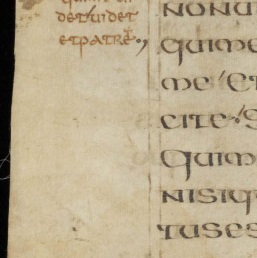 detuidet
etpatrē
nonu
quime
me et
cite s
quim
nisiq
tuses